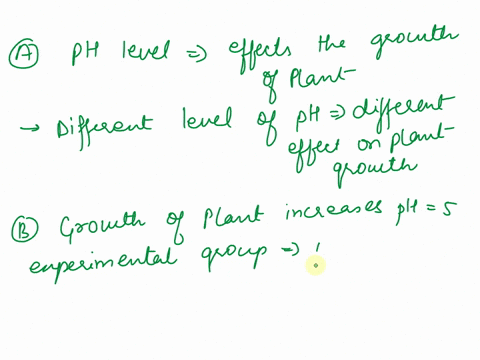 Ⓐ PH level => effects the growth
of Plant
→ Different level of pH => different
effect on plant
growth
Ⓑ Growth of Plant increases pH = 5
experimental group =>